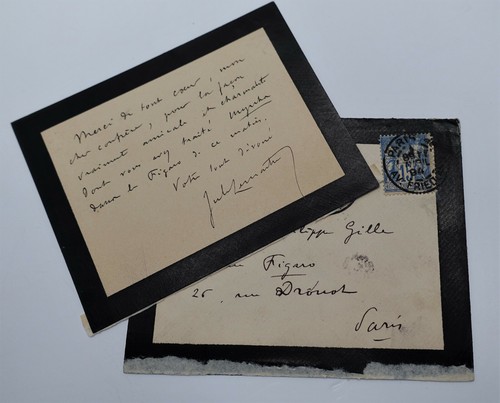 Merci de tout cœur, mon
cher confrère, pour la façon
vraiment amicale et charmante
dont vous avez traité Myrrha
dans le Figaro de ce matin.
Votre tout dévoué
Jules Lemaître
Philippe Gille
Figaro
26, rue Drouot
Paris
PARIS
94